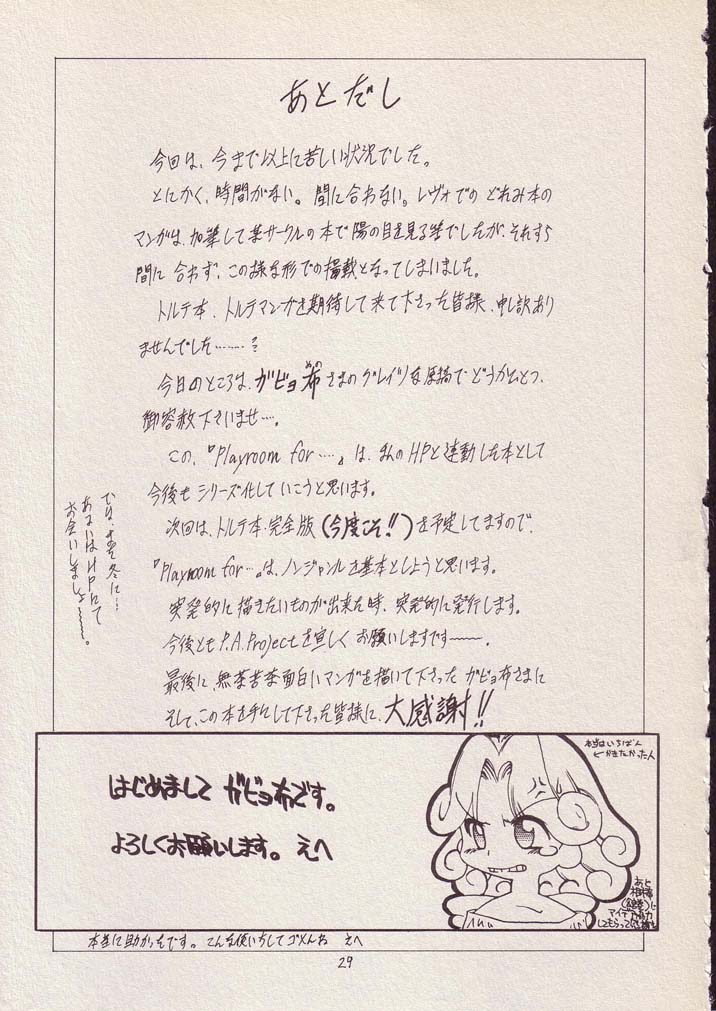 あとだし
今回は、今まで以上に苦しい状況でした。
とにかく、時間がない。間に合わない。レヴォでの どれみ本の
マンガは、加筆して某サークルの本で陽の目を見る筈でしたが、それすら
間に合わず、この様な形での掲載となってしまいました。
トルテ本、トルテマンガを期待して来て下さった皆様、申し訳あり
ませんでした………?
今日のところは、ガビョ布さまのグレイツな原稿でどうかひとつ、
御容赦下さいませ…。
この、『Playroom for……』は、まんのHPと連動した本として
今後もシリーズ化していこうと思います。
次回は、トルテ本・完全版(今度こそ!!)を予定してますので、
『Playroom for…』は、ノンジャンルを基本としようと思います。
突発的に描きたいものが出来た時、突発的に発行します。
今後ともP.A.Projectを宜しくお願いしますです〜〜。
最後に、無茶苦茶面白いマンガを描いて下さった ガビョ布さまに
そして、この本を手にして下さった皆様に、大感謝!!
では、また冬に…
あるいはHPにて
お会いしましょ〜〜。
はじめまして ガビョ布です。
よろしくお願いします。 えへ
本当はいちばん
←かきたかった人
あと
本当に助かったです。こんな使いちしてゴメんね えへ
29